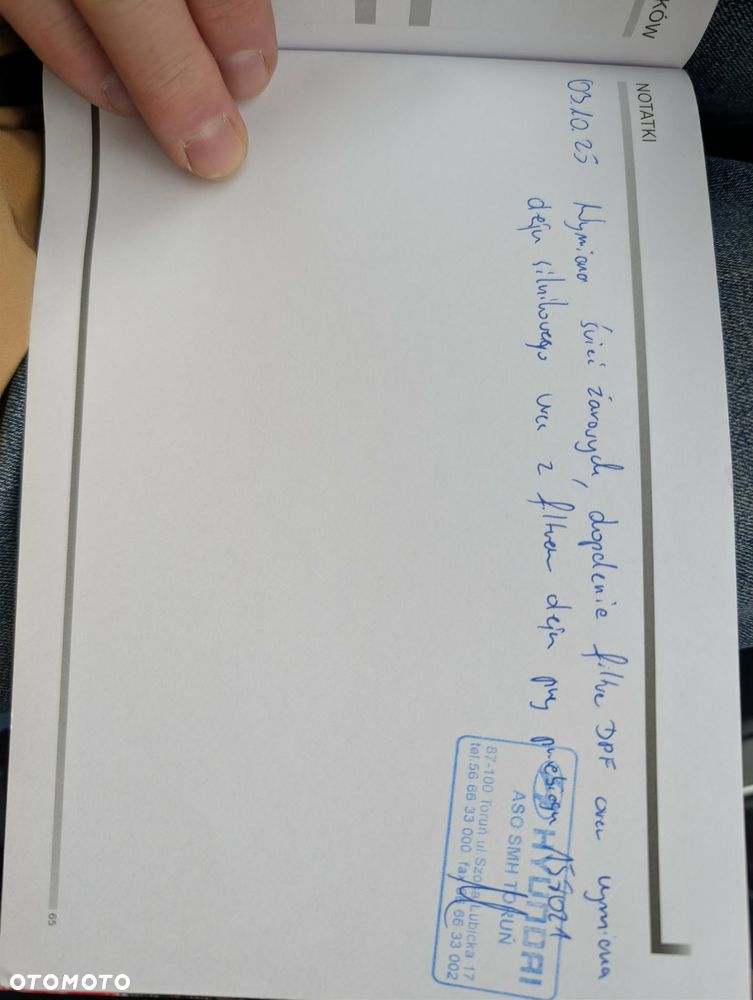 KÓW
NOTATKI
03.10.25 Wymiana świec żarowych, dopalenie filtra DPF oraz wymiana
oleju silnikowego wraz z filtrem oleju przy przebiegu 157021
HYUNDAI
ASO SMH TORUŃ
87-100 Toruń ul Szosa Lubicka 17
tel.56 66 33 000 fax 56 66 33 002
65
OTOMOTO